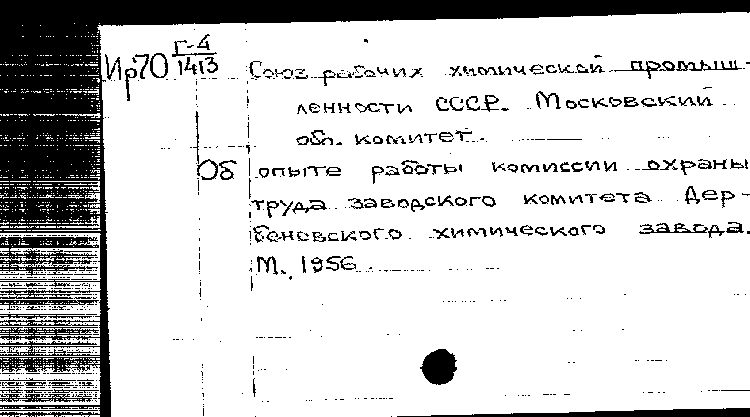 Ир70 Г-4/1413
Союз рабочих химической промыш-
ленности СССР. Московский
обл. комитет.
Об опыте работы комиссии охраны
труда заводского комитета Дер-
беневского химического завода.
М., 1956